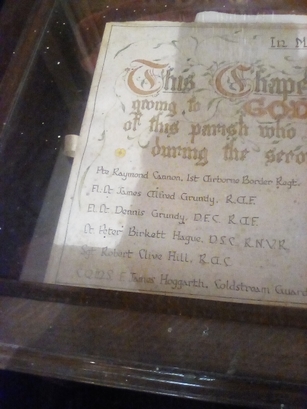 In M
This Chape
giving to GOD
of this parish who
during the seco
Pte Raymond Cannon, 1st Airborne Border Regt.
Fl. Lt. James Alfred Grundy, R.A.F.
Fl. Lt. Dennis Grundy, D.F.C. R.A.F.
Lt Peter Birkett Hague, D.S.C. R.N.V.R.
Sgt Robert Clive Hill, R.A.C.
James Hoggarth, Coldstream Guard